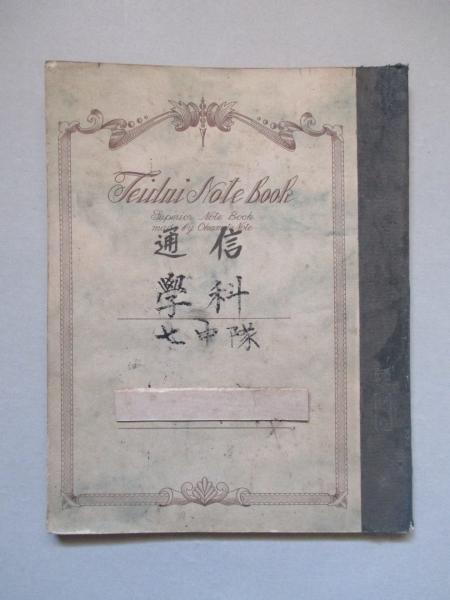 Teidai Note Book
Superior Note Book
made by Okamoto Note
通信
學科
七中隊